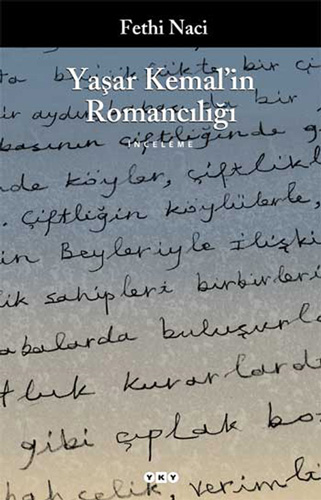 Fethi Naci
Yaşar Kemal'in
Romancılığı
İNCELEME
bir çi
bir aydın bir
basının çiftliğinde g
nde köyler, çiftlikl
. Çiftliğin köylülerle,
in Beyleriyle İlişki
lik sahipleri birbirleri
abalarda buluşurla
tluk kurarlard
gibi çıplak bo
YKY
bahçelik, verimli